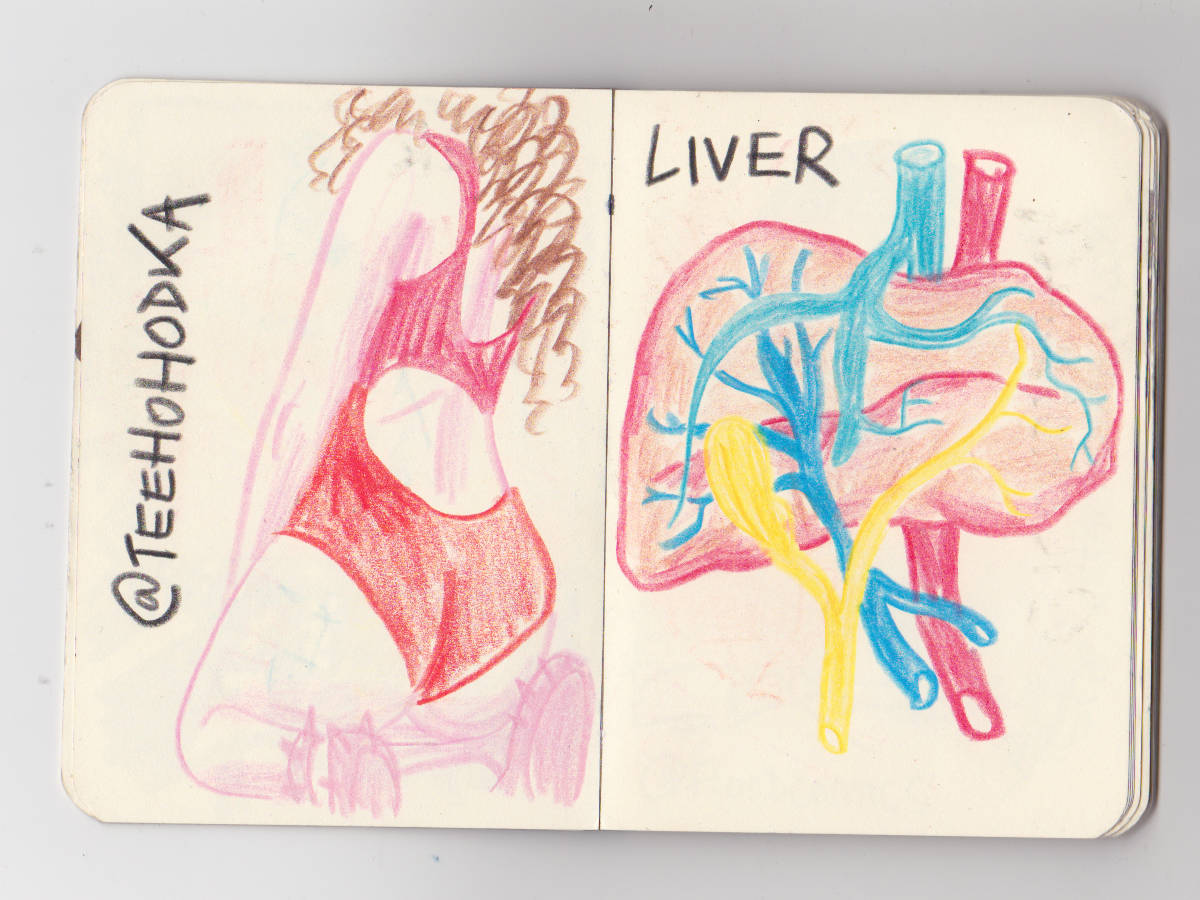 @TEEHOHODKA
LIVER